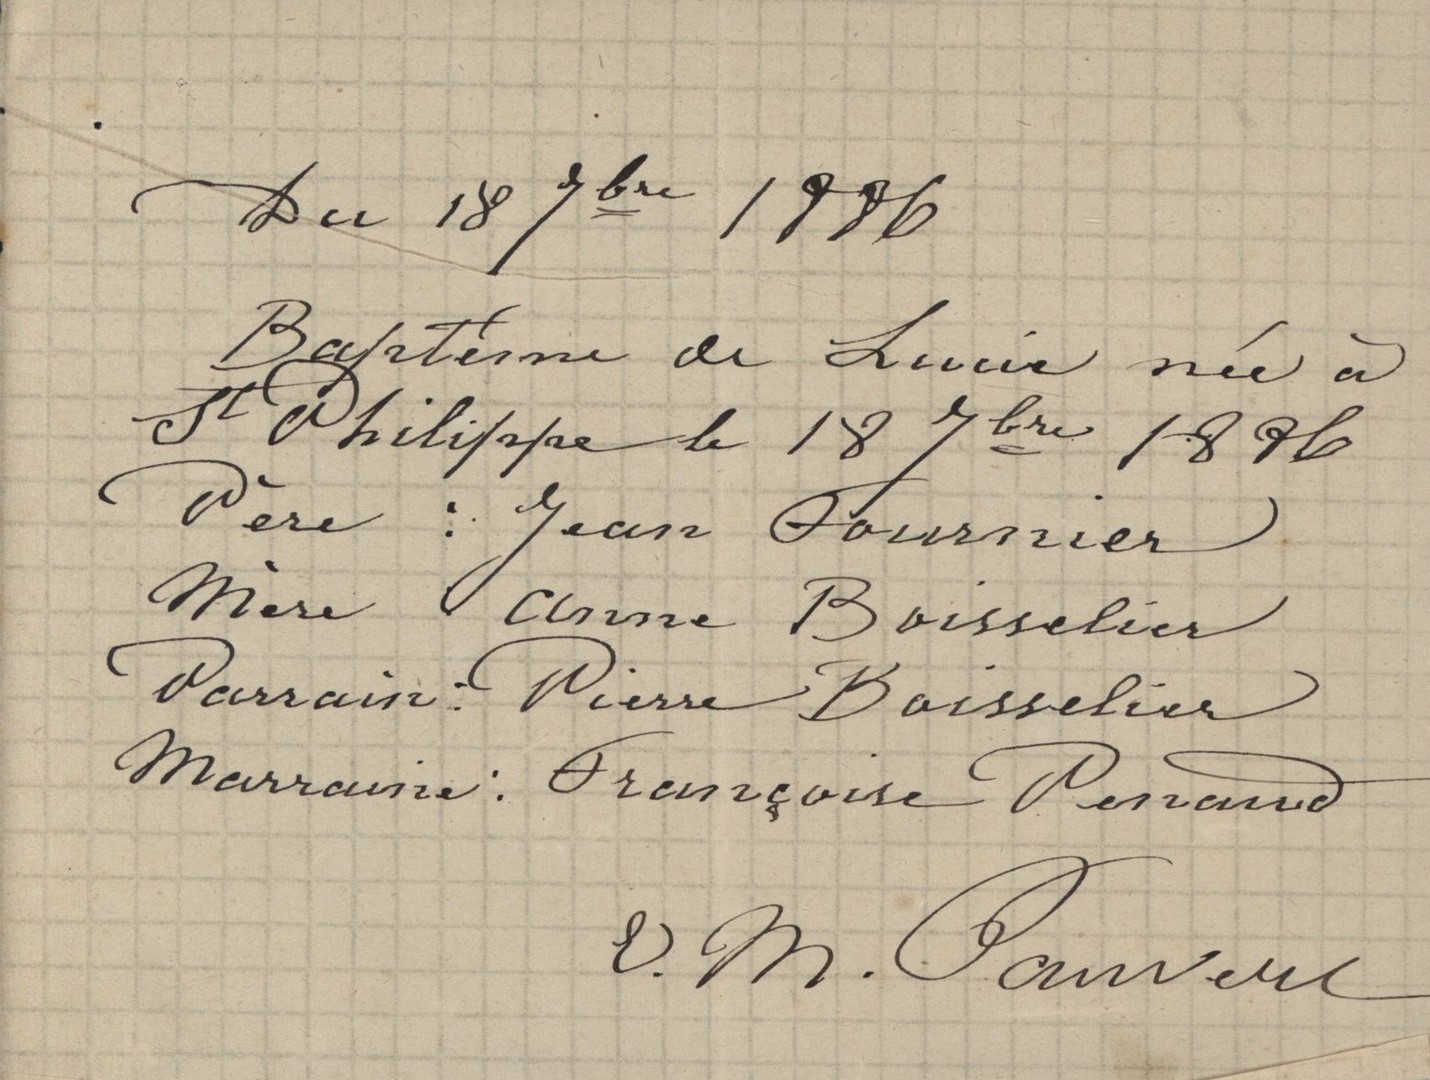 Du 18 7bre 1896
Baptême de Lucie née à
St Philippe le 18 7bre 1896
Père : Jean Fournier
Mère : Anne Boisselier
Parrain : Pierre Boisselier
Marraine : Françoise Penaud
E. M. Pauvert